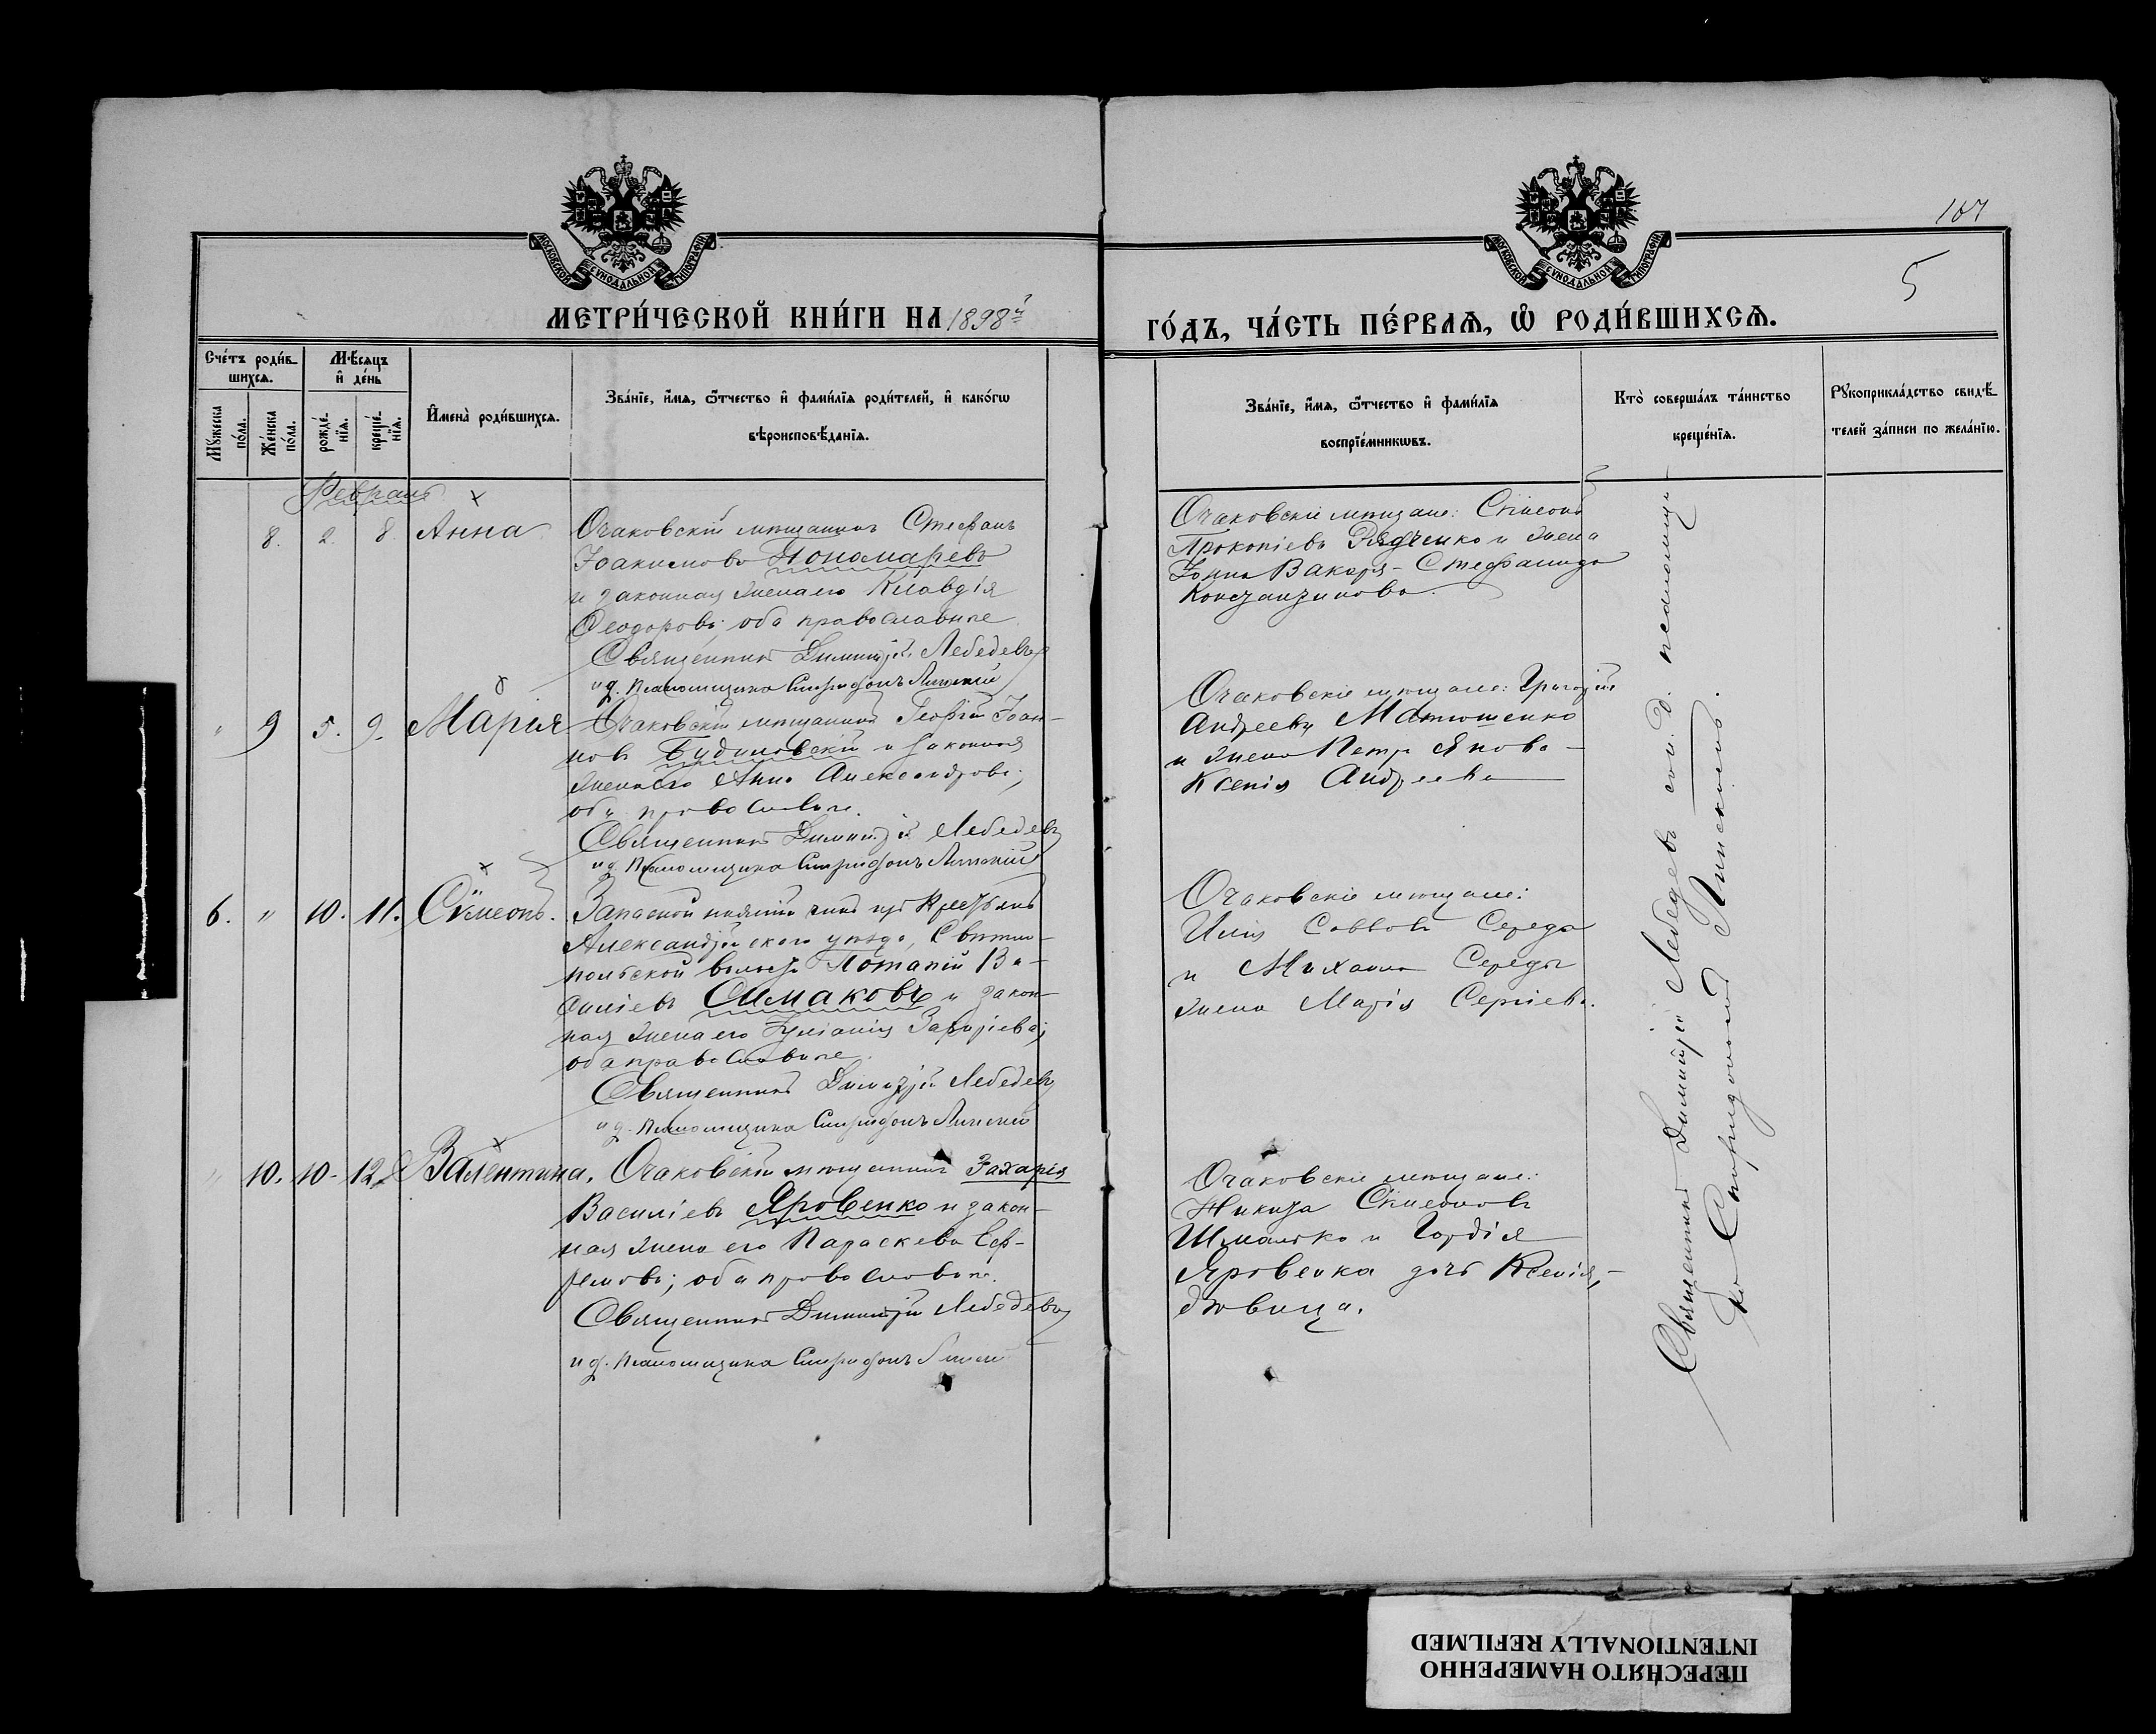 107
5
МОСКОВСКОЙ СѴНОДАЛЬНОЙ ТИПОГРАФІИ
МОСКОВСКОЙ СѴНОДАЛЬНОЙ ТИПОГРАФІИ
МЕТРИ́ЧЕСКОЙ КНИ́ГИ НА 1898й
ГО́ДЪ, ЧА́СТЬ ПЕ́РВАѦ, Ѡ҆ РОДИ́ВШИХСѦ.
Сче́тъ роди́в
шихсѧ.
Мꙋжеска
по́ла.
Же́нска
по́ла.
Мѣ́сяцъ
и҆ де́нь
рожде́
нїѧ.
креще́
нїѧ.
И҆мена̀ роди́вшихсѧ.
Зва́нїе, и҆́мѧ, ѻ҆́тчество и҆ фами́лїѧ роди́телей, и҆ како́гѡ
вѣроисповѣ́данїѧ.
Зва́нїе, и҆́мѧ, ѻ҆́тчество и҆ фами́лїѧ
воспрїе́мникѡвъ.
Кто̀ соверша́лъ та́инство
креще́нїѧ.
Рꙋкоприкла́дство свидѣ́
телей за́писи по жела́нїю.
Февраль
8. 2. 8. Анна
Очаковскій мѣщанинъ Стефанъ
Іоакимовъ Пономаревъ
и законная жена его Клавдія
Ѳеодорова; оба православные
Священникъ Димитрій Лебедевъ
и д. псаломщика Спиридонъ Липскій
Очаковскіе мѣщане: Сѵмеонъ
Прокопіевъ Рядченко и жена
Вакаря - Стефанида
Константинова.
" 9 5. 9. Марія
Очаковскій мѣщанинъ Георгій Іоан-
новъ Будиловскій и законная
жена его Анна Александрова;
оба православные.
Священникъ Димитрій Лебедевъ
и д. псаломщика Спиридонъ Липскій
Очаковскіе мѣщане: Григорій
Андреевъ Матюшенко
и жена Петра
Ксенія Андреева
6. " 10. 11. Сѵмеонъ.
Запасной чинъ изъ крестьянъ
Александрійскаго уѣзда,
польской волости Потапій Ва-
силіевъ Симаковъ и закон-
ная жена его Іуліанія Захаріева;
оба православные.
Священникъ Димитрій Лебедевъ
и д. псаломщика Спиридонъ Липскій
Очаковскіе мѣщане:
Илія Саввовъ Середа
и Михаила Середы
жена Марія Сергіева.
" 10. 10. 12. Валентина.
Очаковскій мѣщанинъ Захарія
Василіевъ Яровенко и закон-
ная жена его Параскева Еф-
ремова; оба православные.
Священникъ Димитрій Лебедевъ
и д. псаломщика Спиридонъ Липскій
Очаковскіе мѣщане:
Никита Сѵмеоновъ
Шмалько и Гордія
Яровенка дочь Ксенія,
дѣвица.
Священникъ Димитрій Лебедевъ съ и. д. псаломщи-
ка Спиридономъ Липскимъ.
ПЕРЕСНЯТО НАМЕРЕННО
INTENTIONALLY REFILMED